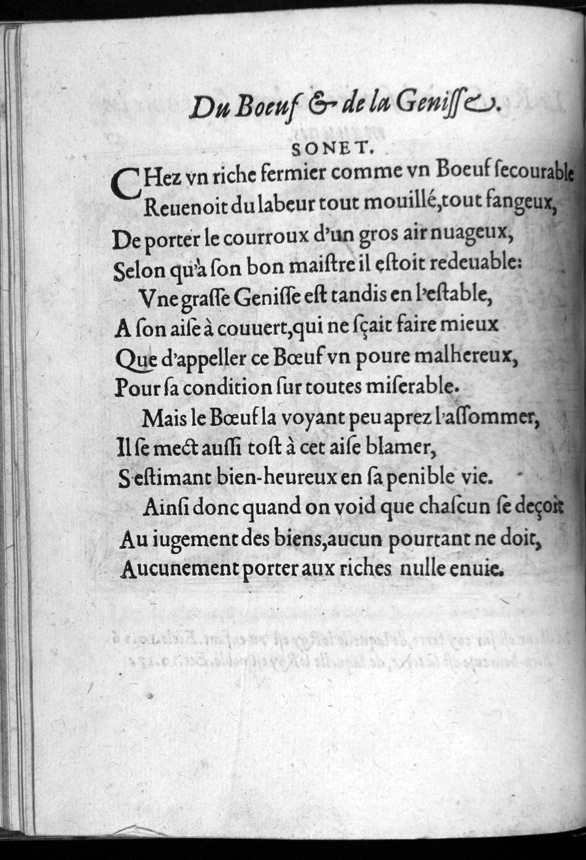 Du Boeuf & de la Geniſſe.
SONET.
CHez vn riche fermier comme vn Boeuf ſecourable
Reuenoit du labeur tout mouillé,tout fangeux,
De porter le courroux d'vn gros air nuageux,
Selon qu'à ſon bon maiſtre il eſtoit redeuable:
Vne graſſe Geniſſe eſt tandis en l'eſtable,
A ſon aiſe à couuert,qui ne ſçait faire mieux
Que d'appeller ce Bœuf vn poure malhereux,
Pour ſa condition ſur toutes miſerable.
Mais le Bœuf la voyant peu aprez l'aſſommer,
Il ſe mect auſſi toſt à cet aiſe blamer,
S'eſtimant bien-heureux en ſa penible vie.
Ainſi donc quand on void que chaſcun ſe deçoit
Au iugement des biens,aucun pourtant ne doit,
Aucunement porter aux riches nulle enuie.